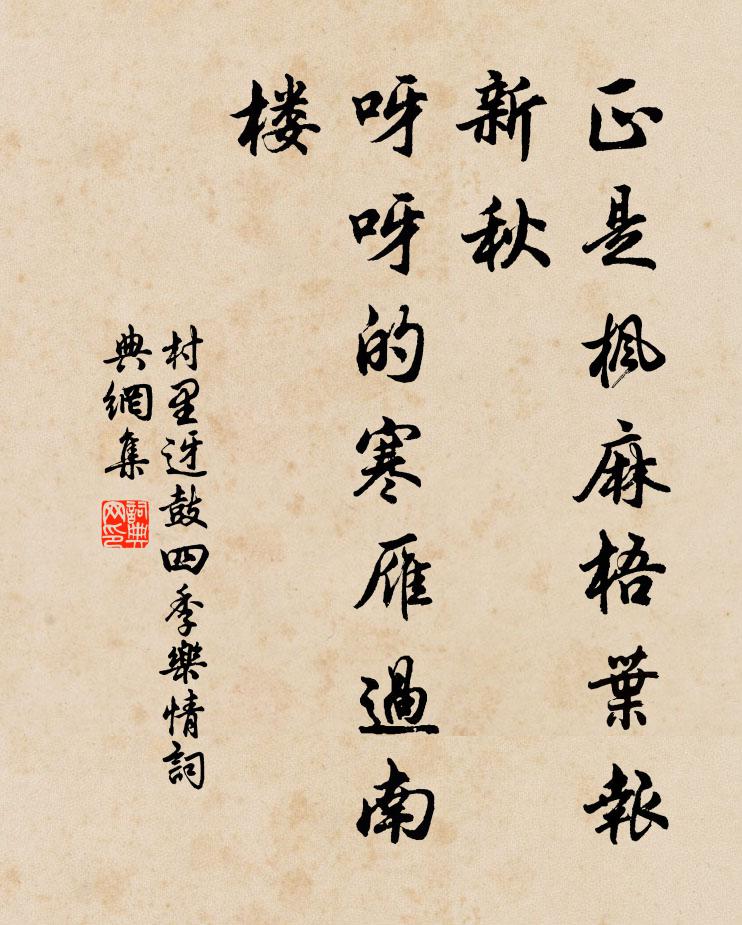 正是枫麻梧葉報
新秋
呀呀的寒雁過南
楼
村里迓鼓四季樂情詞
典網集
詞典
网印